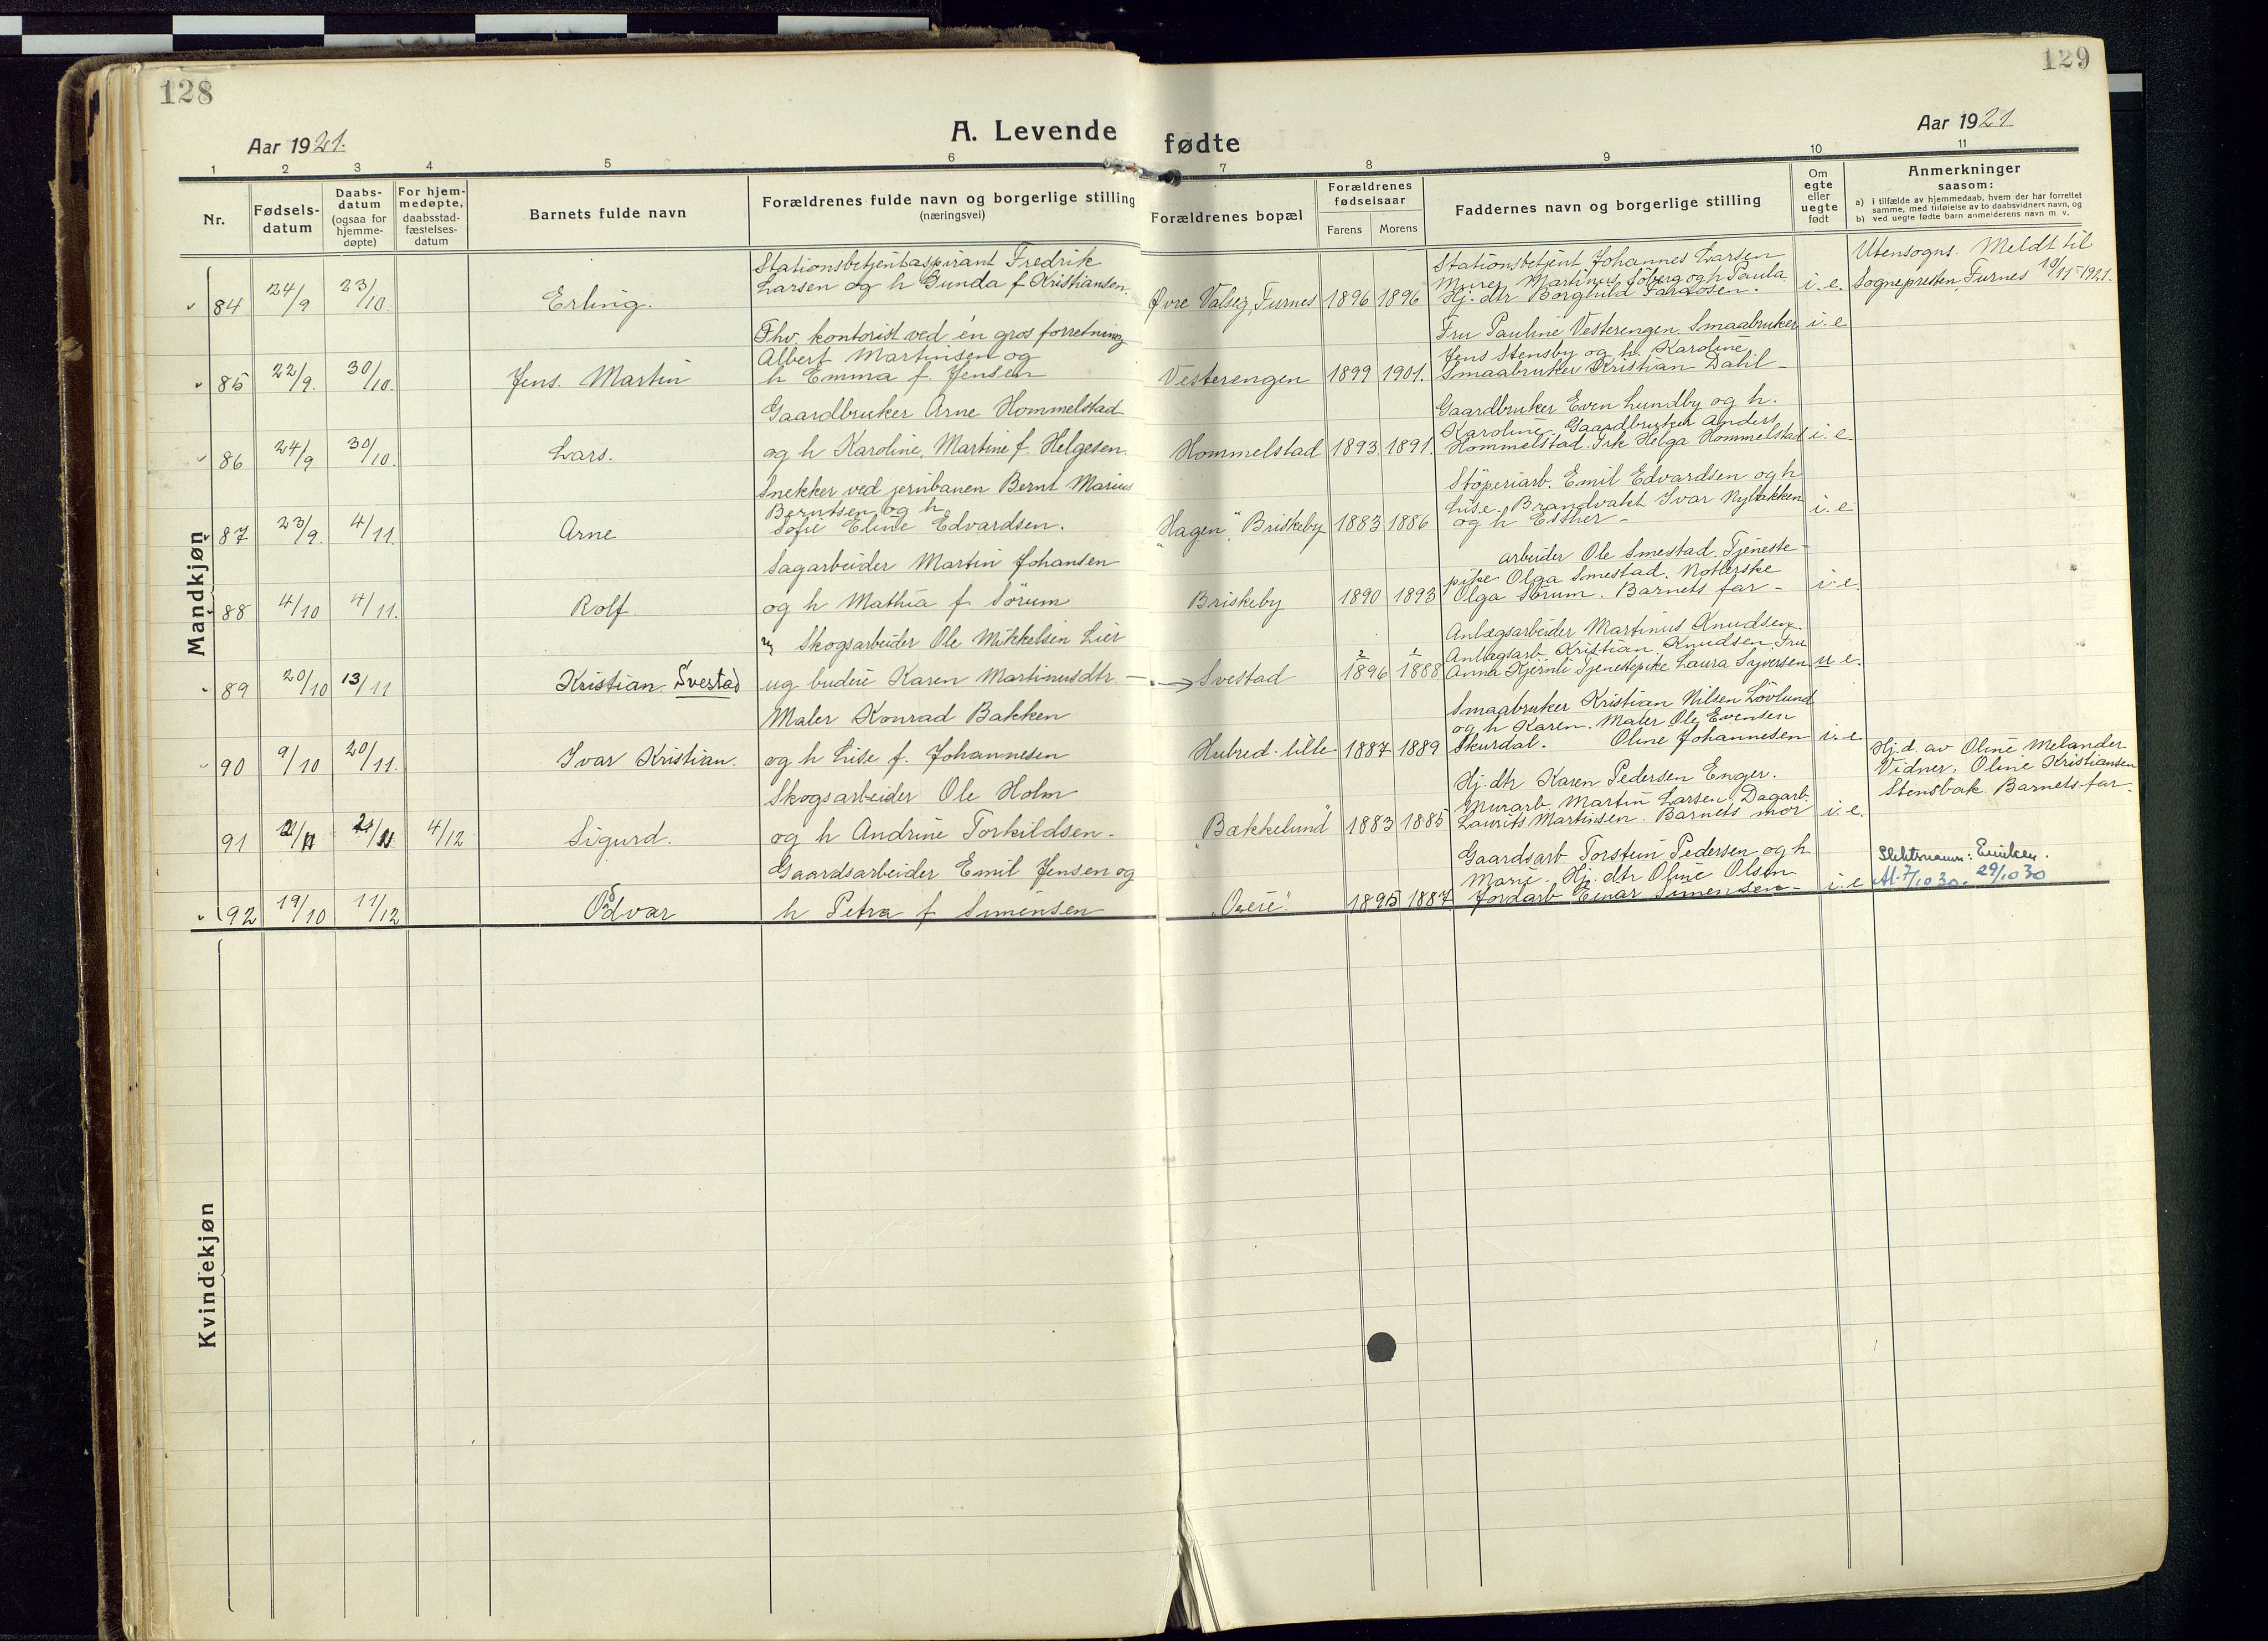 128
129
Aar 1921.
A. Levende fødte
Aar 1921
1 2 3 4 5 6 7 8 9 10 11
Nr.
Fødselsdatum
Daabsdatum (ogsaa for hjemmedøpte)
For hjemmedøpte, daabsstadfæstelsesdatum
Barnets fulde navn
Forældrenes fulde navn og borgerlige stilling (næringsvei)
Forældrenes bopæl
Forældrenes fødselsaar
Farens
Morens
Faddernes navn og borgerlige stilling
Om egte eller uegte født
Anmerkninger
saasom:
a) i tilfælde av hjemmedaab, hvem der har forrettet samme, med tilføielse av to daabsvidners navn, og
b) ved uegte fødte barn anmelderens navn m. v.
Mandkjøn
84 24/9 23/10. Erling.
Stationsbetjentaspirant Fredrik
Larsen og h Gunda f Kristiansen.
Øvre Valseg, Furnes 1896 1896
Stationsbetjent Johannes Larsen
Murer Martinus Soberg og h Paula
Hj. dtr Borghild Fardosen.
i. e.
Utensogns. Meldt til
Sognepresten, Furnes 10/11-1921.
85 22/9. 30/10. Jens Martin
Fhv. kontorist ved én gros forretning
Albert Martinsen og
h Emma f Jensen
Vesterengen 1899 1901.
Fru Pauline Vesterengen. Smaabruker
Jens Stensby og h. Karoline
Smaabruker Kristian Dahl -
i. e
86 24/9 30/10. Lars.
Gaardbruker Arne Hommelstad
og h Karoline, Martine f. Helgesen.
Hommelstad 1893 1891.
Gaardbruker Even Lundby og h.
Karoline. Gaardbruker Anders
Hommelstad. Frk Helga Hommelstad
i. e.
87 23/9. 4/11. Arne
Snekker ved jernbanen Bernt Marius
Berntsen og h
Sofie Eline Edvardsen.
"Hagen", Briskeby 1883 1886
Støperiarb. Emil Edvardsen og h
Lise. Brandvakt Ivar Nybakken
og h Esther -
i. e
88 4/10 4/11. Rolf.
Sagarbeider Martin Johansen
og h Mathea f Sørum
Briskeby 1890 1893
arbeider Ole Smestad. Tjeneste-
pike Olga Smestad.
Olga Sørum. Barnets far -
i. e.
89 20/10 13/11 Kristian. Svestad
Skogsarbeider Ole Mikkelsen Lier
ug budeie Karen Martinusdtr. -
Svestad 1896 1888
Anlægsarbeider Martinus Knudsen.
Anlægsarb. Kristian Knudsen. Fru
Anna Kjernli Tjenestepike Laura Syversen.
u e.
90 9/10 20/11. Ivar Kristian.
Maler Konrad Bakken
og h Lise f. Johannesen
Hubred lille 1887 1889
Smaabruker Kristian Nilsen Løvlund
og h Karen. Maler Ole Evensen
Skurdal. Oline Johannesen
i. e
91 21/11 4/12 Sigurd.
Skogsarbeider Ole Holm
og h Andrine Torkildsen.
"Bækkelund" 1883 1885
Hj. dtr Karen Pedersen Enger.
Murarb. Martin Larsen, Dagarb.
Laurits Martinsen. Barnets mor
i. e.
Hj. d. av Oline Melander
Vidner, Oline Kristiansen
Stensbak Barnets far -
92 19/10 11/12 Odvar
Gaardsarbeider Emil Jensen og
h Petra f Simensen
1895 1887
Gaardsarb Torstein Pedersen og h
Marie. Hj. dtr Oline Olsen
Jordarb Einar Simensen -
i. e
Slektsnavn:
7/10 30. 29/10 30
Kvindekjøn